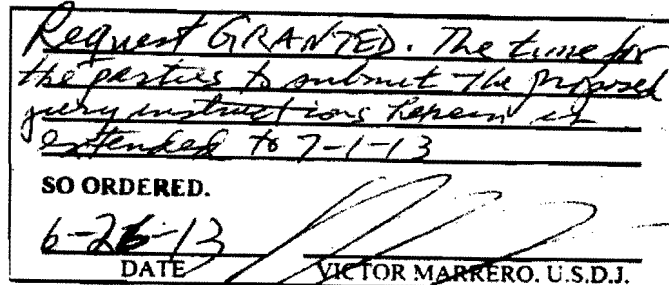 Request GRANTED. The time for
the parties to submit the proposed
jury instructions herein is
extended to 7-1-13
SO ORDERED.
6-26-13
DATE VICTOR MARRERO. U.S.D.J.